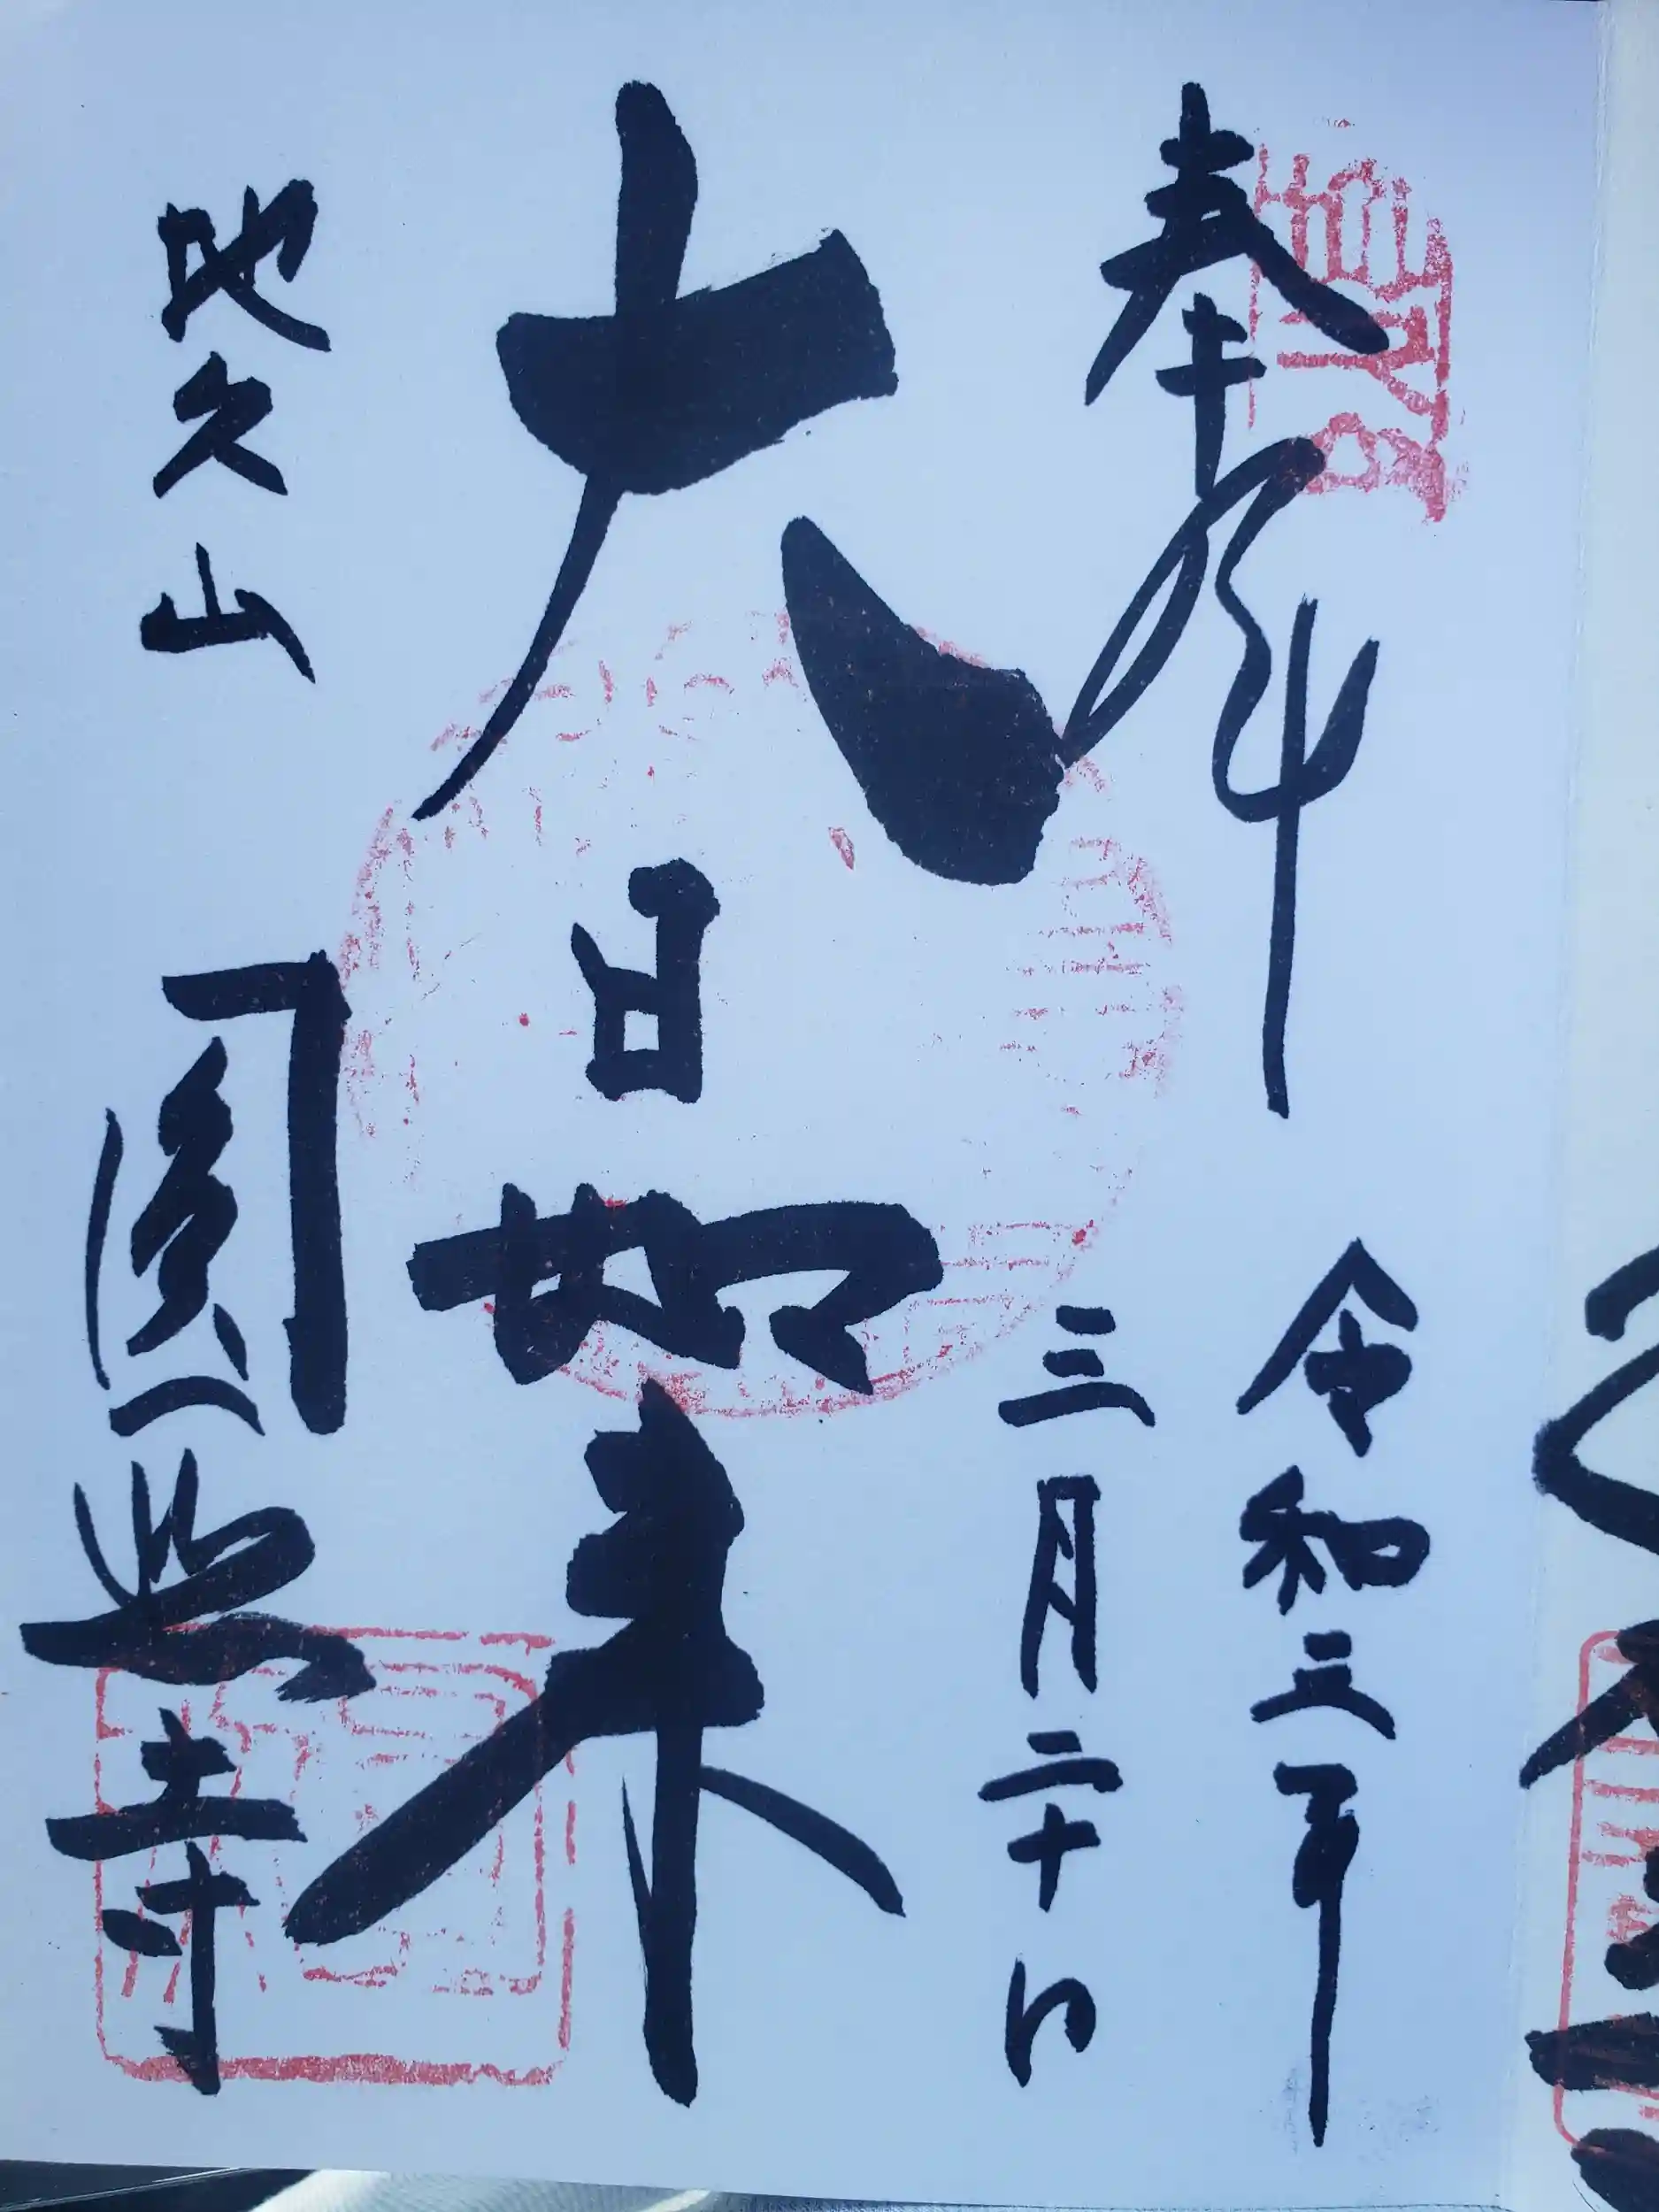 奉拝
令和三年
三月二十日
大日如来
地久山
圓照寺